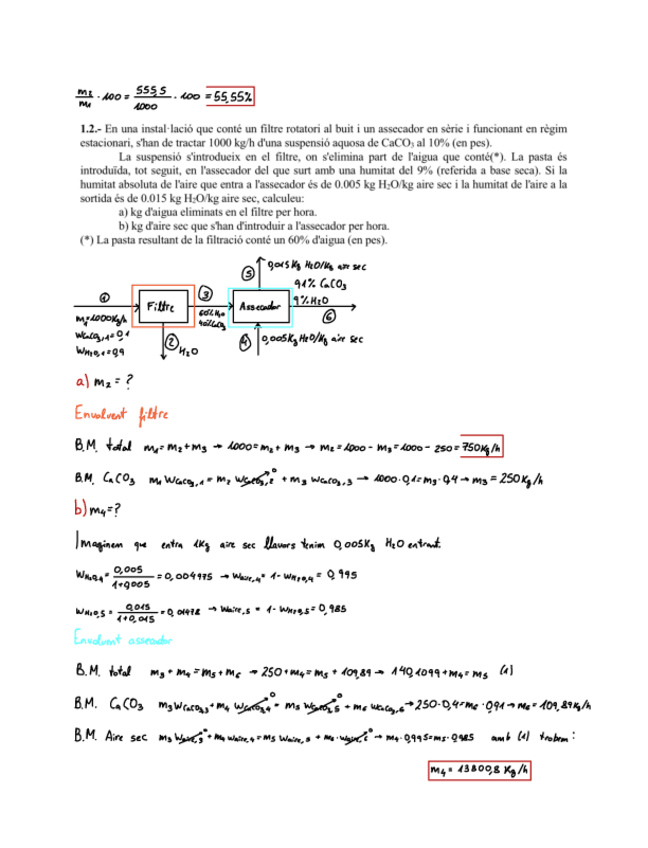 m₂/m₁ · 100 = 555,5/1000 · 100 = 55,55%
1.2.- En una instal·lació que conté un filtre rotatori al buit i un assecador en sèrie i funcionant en règim
estacionari, s'han de tractar 1000 kg/h d'una suspensió aquosa de CaCO₃ al 10% (en pes).
La suspensió s'introdueix en el filtre, on s'elimina part de l'aigua que conté(*). La pasta és
introduïda, tot seguit, en l'assecador del que surt amb una humitat del 9% (referida a base seca). Si la
humitat absoluta de l'aire que entra a l'assecador és de 0.005 kg H₂O/kg aire sec i la humitat de l'aire a la
sortida és de 0.015 kg H₂O/kg aire sec, calculeu:
a) kg d'aigua eliminats en el filtre per hora.
b) kg d'aire sec que s'han d'introduir a l'assecador per hora.
(*) La pasta resultant de la filtració conté un 60% d'aigua (en pes).
⑤ 0,015 Kg H₂O/Kg aire sec
91% CaCO₃
① Filtre ③ Assecador 9% H₂O
m₁=1000Kg/h 60% H₂O 40% CaCO₃ ⑥
WCaCO₃,1=0,1 ② H₂O ④ 0,005Kg H₂O/Kg aire sec
WH₂O,1=0,9
a) m₂ = ?
Envolvent filtre
B.M. total m₁=m₂+m₃ → 1000=m₂+m₃ → m₂=1000-m₃=1000-250=750Kg/h
B.M. CaCO₃ m₁ WCaCO₃,1 = m₂ WCaCO₃,2⁰ + m₃ WCaCO₃,3 → 1000·0,1=m₃·0,4 → m₃=250Kg/h
b) m₄=?
Imaginem que entra 1Kg aire sec llavors tenim 0,005Kg H₂O entrant.
WH₂O,4 = 0,005/1+0,005 = 0,004975 → Waire,4 = 1-WH₂O,4 = 0,995
WH₂O,5 = 0,015/1+0,015 = 0,01478 → Waire,5 = 1-WH₂O,5 = 0,985
Envolvent assecador
B.M. total m₃+m₄=m₅+m₆ → 250+m₄=m₅+109,89 → 140,1099+m₄=m₅ (1)
B.M. CaCO₃ m₃WCaCO₃,3+m₄ WCaCO₃,4⁰ = m₅ WCaCO₃,5⁰ + m₆ WCaCO₃,6 → 250·0,4=m₆·0,91 → m₆=109,89Kg/h
B.M. Aire sec m₃ Waire,3⁰ + m₄ Waire,4 = m₅ Waire,5 + m₆·Waire,6⁰ → m₄·0,995=m₅·0,985 amb (1) trobem:
m₄ = 13800,8 Kg/h